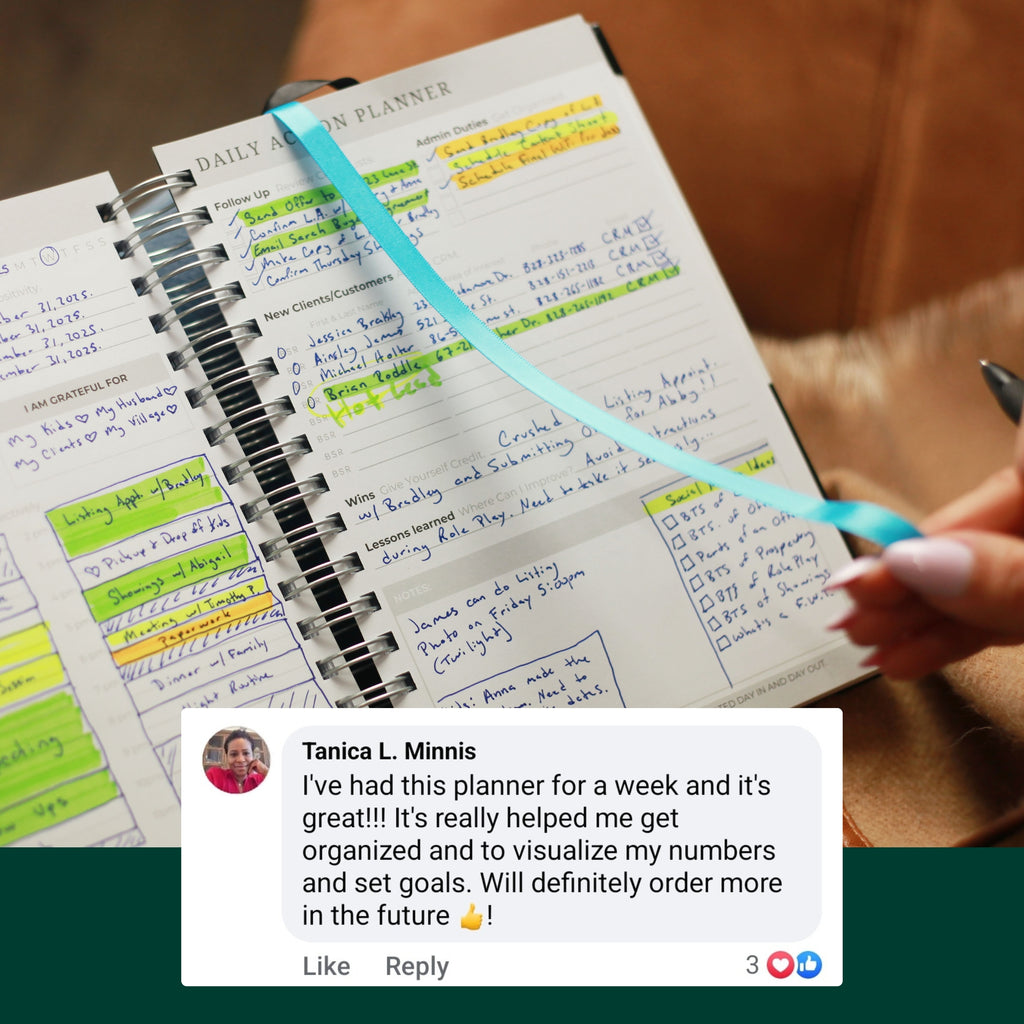 DAILY AC ON PLANNER
Follow Up
Send Offer to
Confirm L.A. w/
Email Sarah
Make Copy of
Confirm Thursday
Admin Duties Get Organized
Send Bradley Copy of L.A.
Schedule Content
Schedule Final W.T.
New Clients/Customers
CRM
First & Last Name
Phone
Jessica Brakley
CRM
Ainsley James 521
828-151-2213 CRM
Michael Holter
828-265-1182 CRM
Brian Roddle
Dr. 828-265-1192 CRM
Hot Lead
BSR
BSR
BSR
Wins Give Yourself Credit. Crushed Listing Appoint.
w/ Bradley and Submitting for Abby!!
Lessons learned Where Can I Improve? Avoid
during Role Play. Need to take it
NOTES:
James can do
Photo on Friday 5:00pm
(Twilight)
Anna made the
Need to
dates.
Social Ideas
BTS of
BTS. of
Parts of an
BTS of Prospecting
BTS of RolePlay
BTS of Showings
What's a
TED DAY IN AND DAY OUT.
S M T W T F S S
ositivity.
ber 31, 2025.
31, 2025.
mber 31, 2025.
cember 31, 2025.
I AM GRATEFUL FOR
My Kids ♡ My Husband ♡
My Clients ♡ My Village ♡
Listing Appt. w/ Bradley
♡ Pickup & Drop off Kids
Showings w/ Abigail
Meeting w/ Timothy P.
Paperwork
Dinner w/ Family
Night Routine
Ups
Tanica L. Minnis
I've had this planner for a week and it's
great!!! It's really helped me get
organized and to visualize my numbers
and set goals. Will definitely order more
in the future 👍!
Like Reply 3